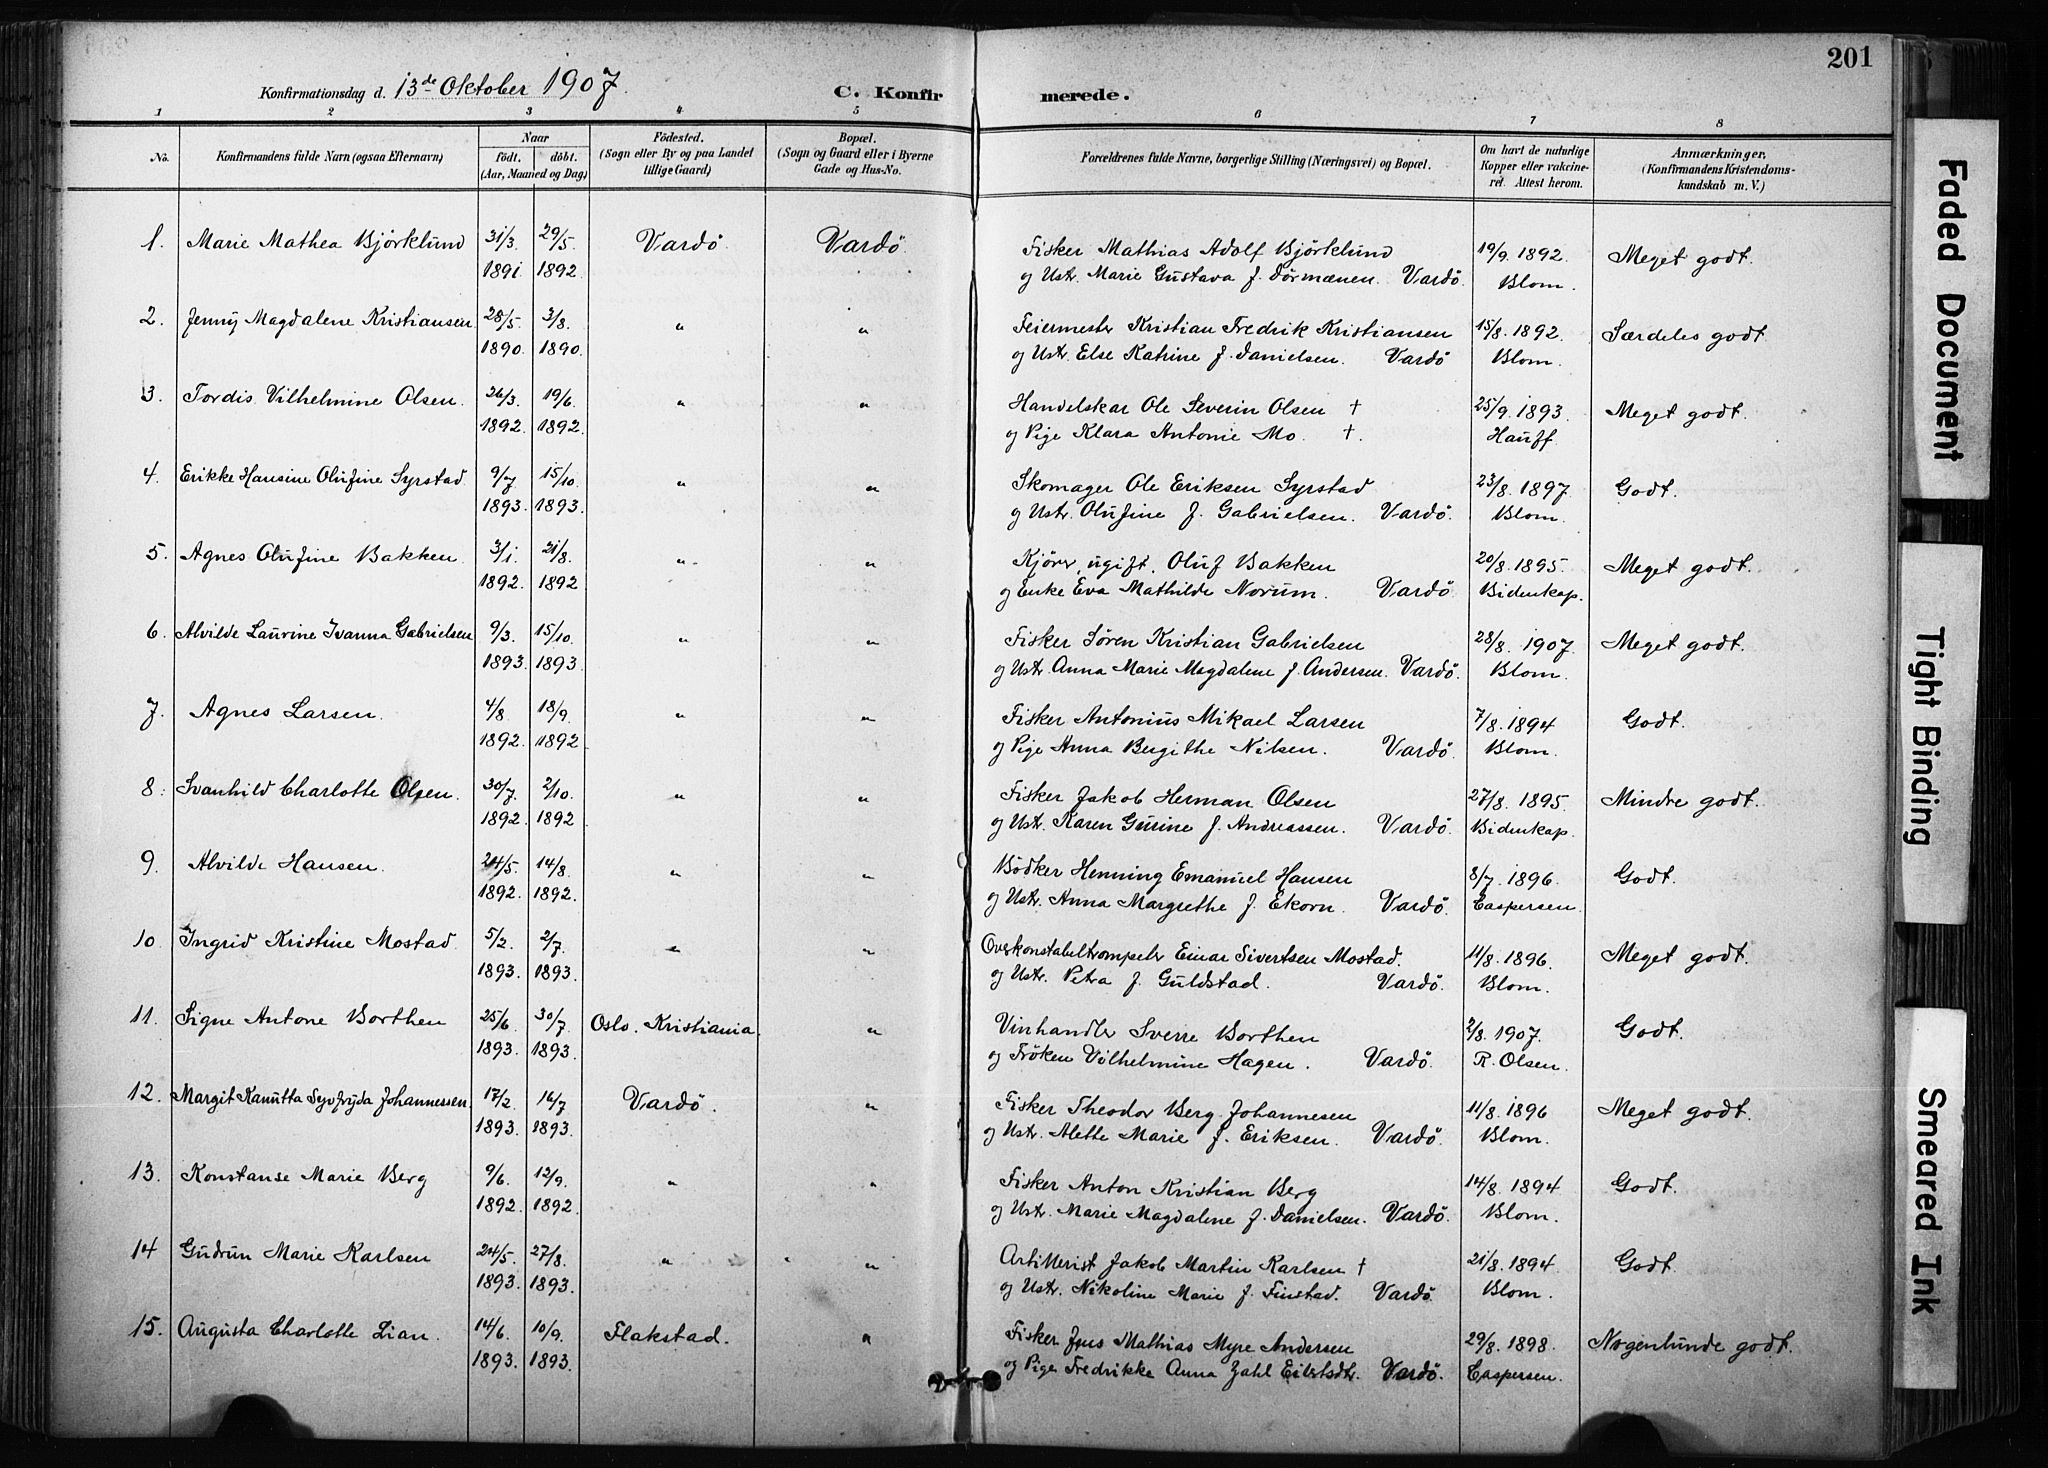 201
Konfirmationsdag d. 13de Oktober 1907.
C. Konfirmerede.
1 2 3 4 5 6 7 8
No.
Konfirmandens fulde Navn (ogsaa Efternavn)
Naar
født. døbt.
(Aar, Maaned og Dag)
Fødested.
(Sogn eller By og paa Landet
tillige Gaard)
Bopæl.
(Sogn og Gaard eller i Byerne
Gade og Hus-No.
Forældrenes fulde Navne, borgerlige Stilling (Næringsvei) og Bopæl.
Om havt de naturlige
Kopper eller vakcine-
ret. Attest herom.
Anmærkninger.
(Konfirmandens Kristendoms-
kundskab m. V.)
1. Marie Mathea Bjørklund 31/3. 29/5. Vardø. Vardø. Fisker Mathias Adolf Bjørklund 19/9. 1892. Meget godt.
1891 1892. og Ustr. Marie Gustava f. Dørmænen. Vardø. Blom.
2. Jenny Magdalene Kristiansen 28/5. 3/8. " " Feiermester Kristian Fredrik Kristiansen 15/8. 1892. Særdeles godt
1890. 1890. og Ustr. Else Katrine f. Danielsen. Vardø Blom.
3. Tordis Vilhelmine Olsen. 26/3. 19/6. " " Handelskar Ole Severin Olsen † 25/9. 1893. Meget godt.
1892. 1892. og Pige Klara Antonie Mo. †. Hauff.
4. Erikke Hansine Olufine Syrstad 9/7 15/10. " " Skomager Ole Eriksen Syrstad 23/8. 1897. Godt.
1893. 1893. og Ustr. Olufine f. Gabrielsen. Vardø. Blom.
5. Agnes Olufine Bakken. 3/1. 21/8. " " Kjører, ugift, Oluf Bakken 20/8. 1895. Meget godt.
1892. 1892 og Enke Eva Mathilde Norum. Vardø. Bidenkap.
6. Alvilde Laurine Ivanna Gabrielsen 9/3. 15/10. " " Fisker Søren Kristian Gabrielsen 28/8. 1907. Meget godt.
1893. 1893. og Ustr. Anna Marie Magdalene f. Andersen. Vardø. Blom.
7. Agnes Larsen. 4/8 18/9. " " Fisker Antonius Mikael Larsen 7/8. 1894 Godt.
1892. 1892. og Pige Anna Bergithe Nilsen. Vardø. Blom.
8. Svanhild Charlotte Olsen. 30/7. 2/10. " " Fisker Jakob Herman Olsen 27/8. 1895. Mindre godt.
1892. 1892 og Ustr. Karen Gurine f. Andreassen. Vardø. Bidenkap.
9. Alvilde Hansen. 24/5. 14/8. " " Bødker Henning Emanuel Hansen 8/7. 1896. Godt.
1892. 1892. og Ustr. Anna Margrethe f. Ekorn. Vardø. Caspersen.
10. Ingrid Kristine Mostad. 5/2. 2/7. " " Overkonstabeltrompeter Einar Sivertsen Mostad. 11/8. 1896. Meget godt.
1893. 1893. og Ustr. Petra f. Guldstad. Vardø. Blom.
11. Signe Antone Borthen 25/6. 30/7. Oslo. Kristiania. " Vinhandler Sverre Borthen 2/8. 1907. Godt.
1893. 1893. og Frøken Vilhelmine Hagen. Vardø. R. Olsen.
12. Margit Kanutta Syvfryda Johannessen 17/2. 16/7 Vardø. " Fisker Theodor Berg Johannesen 11/8. 1896 Meget godt.
1893. 1893. og Ustr. Alette Marie f. Eriksen. Vardø. Blom.
13. Konstanse Marie Berg 9/6. 12/9. " " Fisker Anton Kristian Berg 14/8. 1894 Godt.
1892. 1892. og Ustr. Marie Magdalene f. Danielsen. Vardø. Blom.
14 Gudrun Marie Karlsen 24/5. 27/8. " " Artillerist Jakob Martin Karlsen † 21/8. 1894. Godt
1893. 1893. og Ustr. Nikoline Marie f. Finstad. Vardø. Blom.
15. Augusta Charlotte Lian. 14/6. 10/9. Flakstad. " Fisker Jens Mathias Myre Andersen 29/8. 1898. Nogenlunde godt.
1893. 1893. og Pige Fredrikke Anna Zahl Eilertsdtr. Vardø. Caspersen.
Faded Document
Tight Binding
Smeared Ink